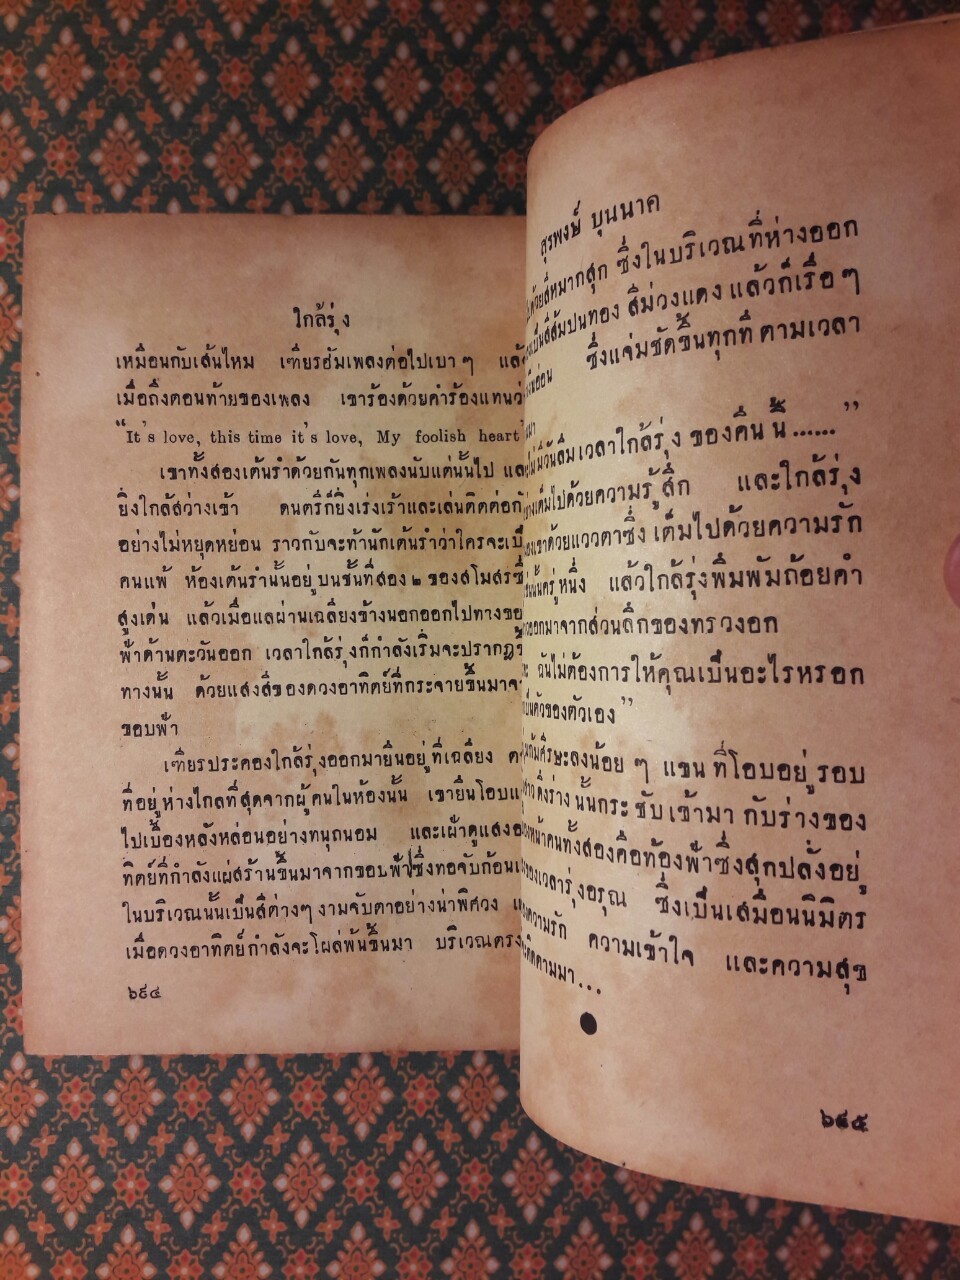 ใกล้รุ่ง
เหมือนกับเส้นไหม เฑียรฮัมเพลงต่อไปเบา ๆ แล้ว
เมื่อถึงตอนท้ายของเพลง เขาร้องด้วยคำร้องแทนว่า
“It's love, this time it's love, My foolish heart
เขาทั้งสองเต้นรำด้วยกันทุกเพลงนับแต่นั้นไป และ
ยิ่งใกล้สว่างเข้า ดนตรีก็ยิ่งเร่งเร้าและเล่นติดต่อกัน
อย่างไม่หยุดหย่อน ราวกับจะท้านักเต้นรำว่าใครจะเป็น
คนแพ้ ห้องเต้นรำนั้นอยู่บนชั้นที่สอง ๒ ของสโมสรซึ่ง
สูงเด่น แล้วเมื่อแลผ่านเฉลียงข้างนอกออกไปทางขอบ
ฟ้าด้านตะวันออก เวลาใกล้รุ่งก็กำลังเริ่มจะปรากฏขึ้น
ทางนั้น ด้วยแสงสีของดวงอาทิตย์ที่กระจายขึ้นมาจาก
ขอบฟ้า
เฑียรประคองใกล้รุ่งออกมายืนอยู่ที่เฉลียง
ที่อยู่ห่างไกลที่สุดจากผู้คนในห้องนั้น เขายืนโอบ
ไปเบื้องหลังหล่อนอย่างทนุถนอม และเฝ้าดูแสง
ทิตย์ที่กำลังแผ่สร้านขึ้นมาจากขอบฟ้าซึ่งทอจับก้อน
ในบริเวณนั้นเป็นสีต่างๆ งามจับตาอย่างน่าพิศวง
เมื่อดวงอาทิตย์กำลังจะโผล่พ้นขึ้นมา บริเวณตรง
๖๙๔
สุรพงษ์ บุนนาค
ด้วยสีหมากสุก ซึ่งในบริเวณที่ห่างออก
เป็นสีส้มปนทอง สีม่วงแดง แล้วก็เรื่อ ๆ
อ่อน ซึ่งแจ่มชัดขึ้นทุกที ตามเวลา
มา
ไม่มีวันลืมเวลาใกล้รุ่ง ของคืนนี้……”
เต็มไปด้วยความรู้สึก และใกล้รุ่ง
เขาด้วยแววตาซึ่งเต็มไปด้วยความรัก
นั้นครู่หนึ่ง แล้วใกล้รุ่งพึมพัมถ้อยคำ
ออกมาจากส่วนลึกของทรวงอก
ฉันไม่ต้องการให้คุณเป็นอะไรหรอก
เป็นตัวของตัวเอง”
ก้มศีรษะลงน้อย ๆ แขนที่โอบอยู่รอบ
ดึงร่างนั้นกระชับเข้ามากับร่างของ
หน้าคนทั้งสองคือท้องฟ้าซึ่งสุกปลั่งอยู่
ของเวลารุ่งอรุณ ซึ่งเป็นเสมือนนิมิตร
ความรัก ความเข้าใจ และความสุข
ติดตามมา...
๖๙๕